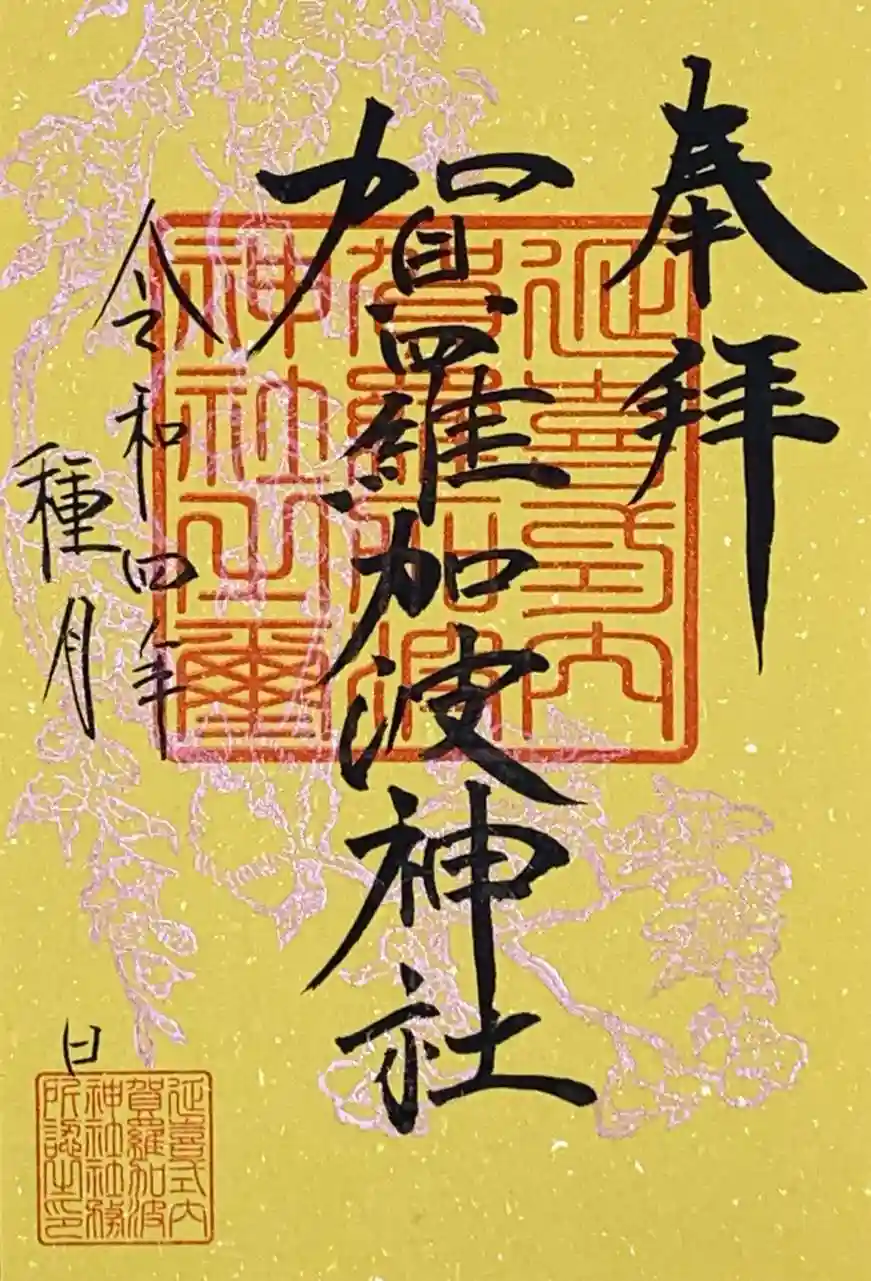 奉拝
延喜式内
賀羅加波神社
賀羅加波
神社之璽
令和四年
種月 日
延喜式内
賀羅加波
神社社務
所認之印